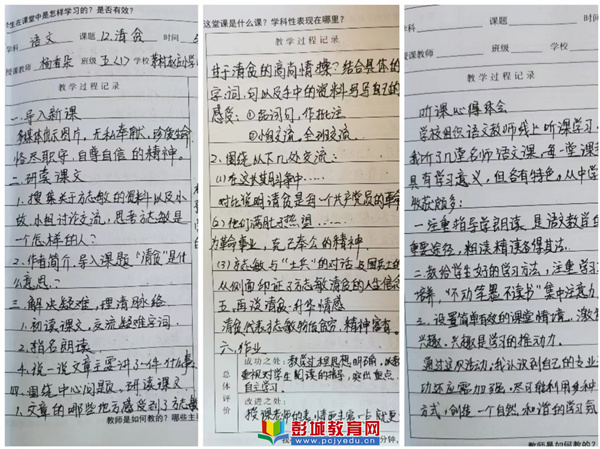 生在课堂中是怎样学习的？是否有效？
学科 语文 课题 12.清贫 时间
授课教师 杨春朵 班级 五(1) 学校
教学过程记录
一、导入新课
多媒体展示图片，无私奉献，
恪尽职守，自尊自信的精神。
二、研读课文
1、搜集关于方志敏的资料以及小
组，小组讨论交流，思考方志敏是
一个怎样的人？
2、作者简介，导入课题"清贫"是什
么意思？
三、解决疑难，理清脉络
1、初读课文，交流疑难字词
2、指名朗读
4、说一说文章主要讲了一件什么事
四、围绕中心问题，研读课文
1、文章的哪些地方感受到了方志敏
教师是如何教的？哪些主
这堂课是什么课？学科性表现在哪里？
教学过程记录
甘于清贫的高尚情操？结合具体的
字、词、句以及手中的资料写写自己的
感受：①品词句，作批注
②小组交流，全班交流
2、围绕以下几处交流：
(1)在这长期的斗争中……
对比说明清贫是每一个共产党员的革命
(2)他们满肚子热望……
为革命事业，克己奉公的精神
(3)方志敏与"士兵"的对话
从侧面印证了方志敏清贫的人生信念
五、再谈清贫，升华情感
清贫代表方志敏物质贫穷，精神富有
六、作业
总体评价
成功之处：教学过程思想明确，
重视对学生阅读的指导，突出重点，
自主学习。
改进之处：
授课老师的表情再丰富一点就更
分钟，
教学过程记录
听课心得体会
学校组织语文教师线上听课学习，
我听了几堂名师语文课，每一堂课
具有学习意义，但各有特色。从中学
收获颇多：
一、注重指导学生朗读，是语文教学的
重要途径，粗读精读各得其法。
二、教给学生好的学习方法，注重学习
培养，"不动笔墨不读书"集中注意力
三、设置简单有效的课堂情境，激发
兴趣，兴趣是学习的推动力。
通过这次活动，我认识到自己的专业
功还应需加强，尽可能利用多种
方式，创造一个自然、和谐的学习氛
教师是如何教的？
彭城教育网
www.pcjyedu.cn